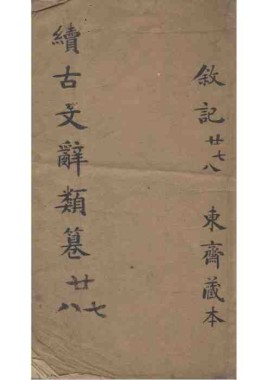 敘記 廿七八 東齋藏本
續古文辭類纂 廿七八